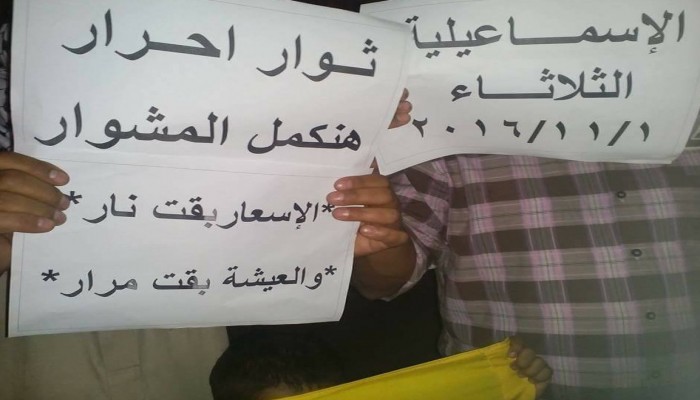 ثوار احرار
هنكمل المشوار
*الإسعار بقت نار*
*والعيشة بقت مرار*
الإسماعيلية
الثلاثاء
٢٠١٦/١١/١